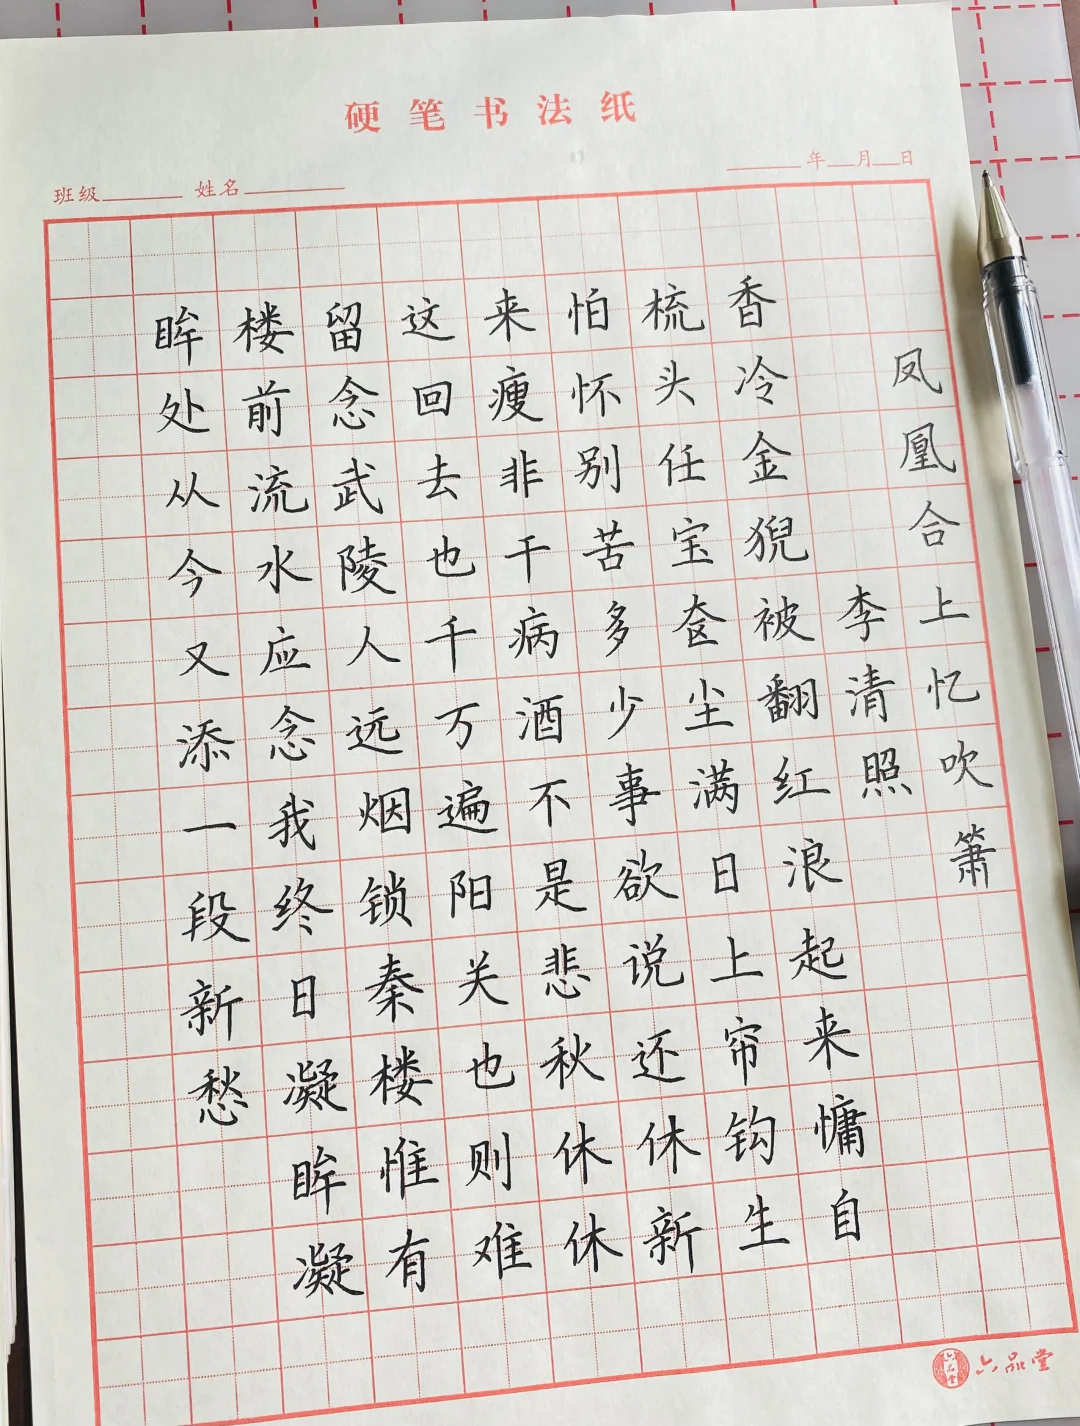 硬笔书法纸
班级 姓名 年 月 日
凤凰合上忆吹箫
李清照
香冷金猊被翻红浪起来慵自
梳头任宝奁尘满日上帘钩生
怕怀别苦多少事欲说还休新
来瘦非干病酒不是悲秋休休
这回去也千万遍阳关也则难
留念武陵人远烟锁秦楼惟有
楼前流水应念我终日凝眸凝
眸处从今又添一段新愁
六品堂